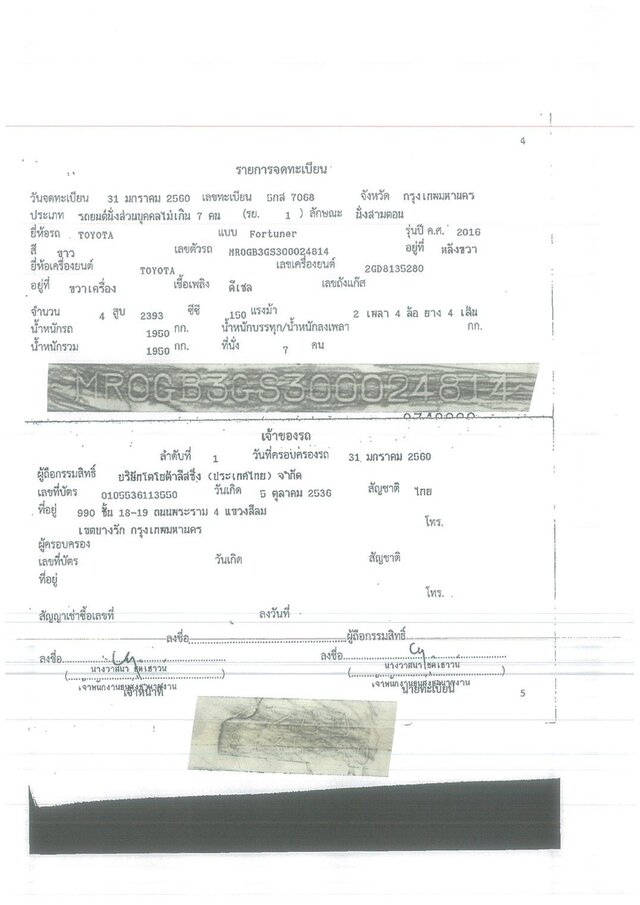 4
รายการจดทะเบียน
วันจดทะเบียน 31 มกราคม 2560 เลขทะเบียน 5กส 7068 จังหวัด กรุงเทพมหานคร
ประเภท รถยนต์นั่งส่วนบุคคลไม่เกิน 7 คน (รย. 1 ) ลักษณะ นั่งสามตอน
ยี่ห้อรถ TOYOTA แบบ Fortuner รุ่นปี ค.ศ. 2016
สี ขาว เลขตัวรถ MR0GB3GS300024814 อยู่ที่ หลังขวา
ยี่ห้อเครื่องยนต์ TOYOTA เลขเครื่องยนต์ 2GD8135280
อยู่ที่ ขวาเครื่อง เชื้อเพลิง ดีเซล เลขถังแก๊ส
จำนวน 4 สูบ 2393 ซีซี 150 แรงม้า 2 เพลา 4 ล้อ ยาง 4 เส้น
น้ำหนักรถ 1950 กก. น้ำหนักบรรทุก/น้ำหนักลงเพลา กก.
น้ำหนักรวม 1950 กก. ที่นั่ง 7 คน
MR0GB3GS300024814
เจ้าของรถ
ลำดับที่ 1 วันที่ครอบครองรถ 31 มกราคม 2560
ผู้ถือกรรมสิทธิ์ บริษัทโตโยต้าลีสซิ่ง (ประเทศไทย) จำกัด
เลขที่บัตร 0105536113550 วันเกิด 5 ตุลาคม 2536 สัญชาติ ไทย
ที่อยู่ 990 ชั้น 18-19 ถนนพระราม 4 แขวงสีลม
เขตบางรัก กรุงเทพมหานคร โทร.
ผู้ครอบครอง
เลขที่บัตร วันเกิด สัญชาติ
ที่อยู่
โทร.
สัญญาเช่าซื้อเลขที่ ลงวันที่
ลงชื่อ ผู้ถือกรรมสิทธิ์
ลงชื่อ ลงชื่อ
นางวาสนา นางวาสนา
เจ้าหน้าที่ นายทะเบียน
5